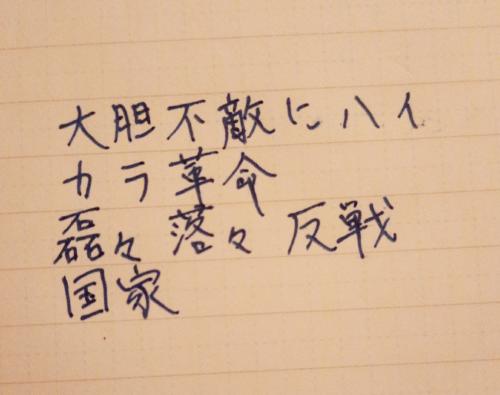 大胆不敵にハイ
カラ革命
磊々落々 反戦
国家